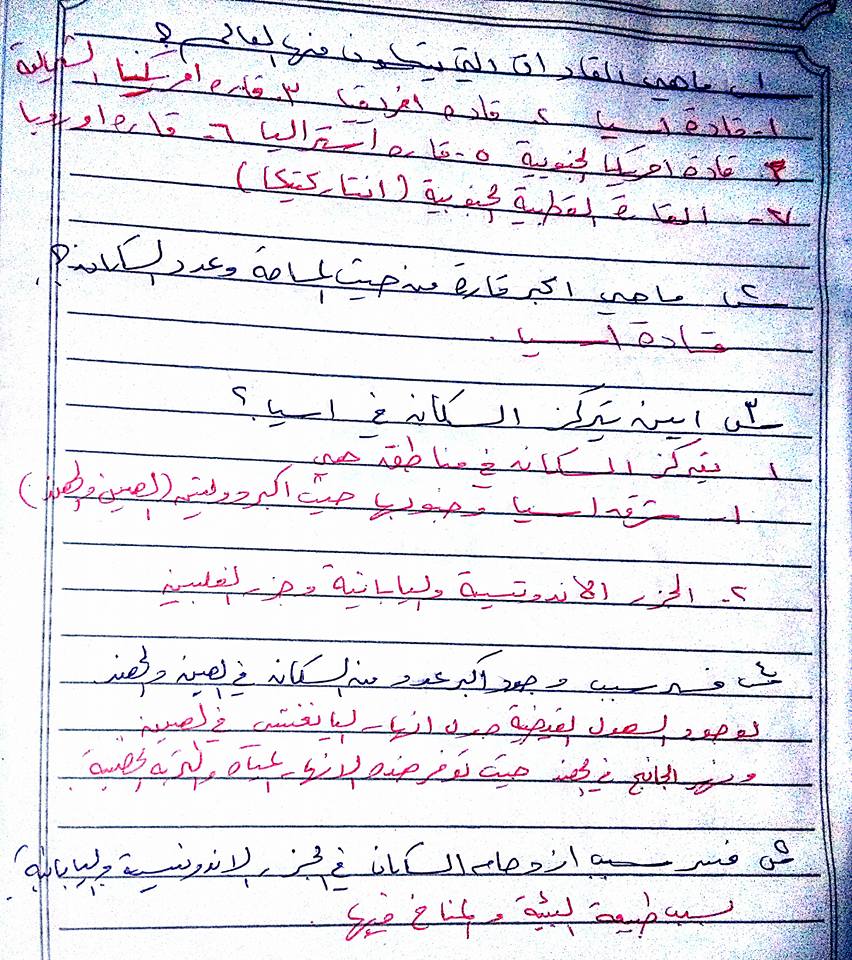 س١ ماهي القارات التي يتكون منها العالم ؟
١- قارة اسيا ٢- قارة افريقيا ٣- قارة امريكيا الشمالية
٤- قارة امريكيا الجنوبية ٥- قارة استراليا ٦- قارة اوروبا
٧- القارة القطبية الجنوبية (انتاركتيكا)
س٢ ماهي اكبر قارة من حيث المساحة وعدد السكان ؟
قارة اسيا .
س٣ اين يتركز السكان في اسيا ؟
١ يتركز السكان في مناطق هي
١- شرق اسيا وجنوبها حيث اكبر دولتين (الصين والهند)
٢- الجزر الاندونسية واليابانية وجزر الفلبين
س٤ فسر سبب وجود اكبر عدد من السكان في الصين والهند
لوجود السهول الفيضية حول انهار اليانغتسي في الصين
ونهر الجانج في الهند حيث توفر هذه الانهار المياه والتربه الخصبة .
س٥ فسر سبب ازدحام السكان في الجزر الاندونسية واليابانية
بسبب طبيعة البيئة والمناخ فيها .